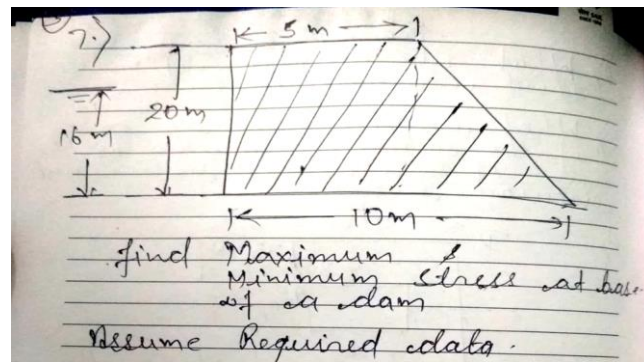 2.)
5 m
20 m
16 m
10 m
find Maximum &
Minimum stress at base
of a dam
Assume Required data.